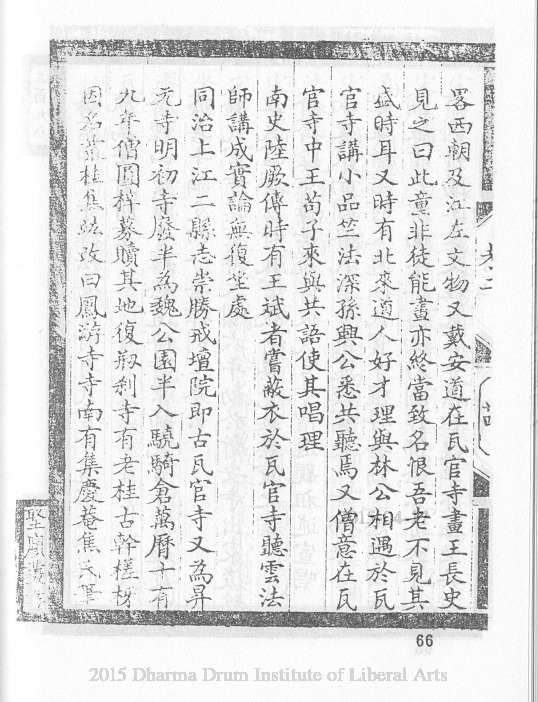 畧西朝及江左文物又戴安道在瓦官寺畫王長史
見之曰此童非徒能畫亦終當致名恨吾老不見其
盛時耳又時有北來道人好才理與林公相遇於瓦
官寺講小品竺法深孫興公悉共聽焉又僧意在瓦
官寺中王苟子來與共語使其唱理
南史陸厥傳時有王斌者嘗蔽衣於瓦官寺聽雲法
師講成實論無復坐處
同治上江二縣志崇勝戒壇院即古瓦官寺又為昇
元寺明初寺廢半為魏公園半入驍騎倉萬厯十有
九年僧圓梓募贖其地復剏刹寺有老桂古幹槎枒
因名叢桂焦竑改曰鳳游寺寺南有集慶菴焦氏筆
卷二
66
2015 Dharma Drum Institute of Liberal Arts